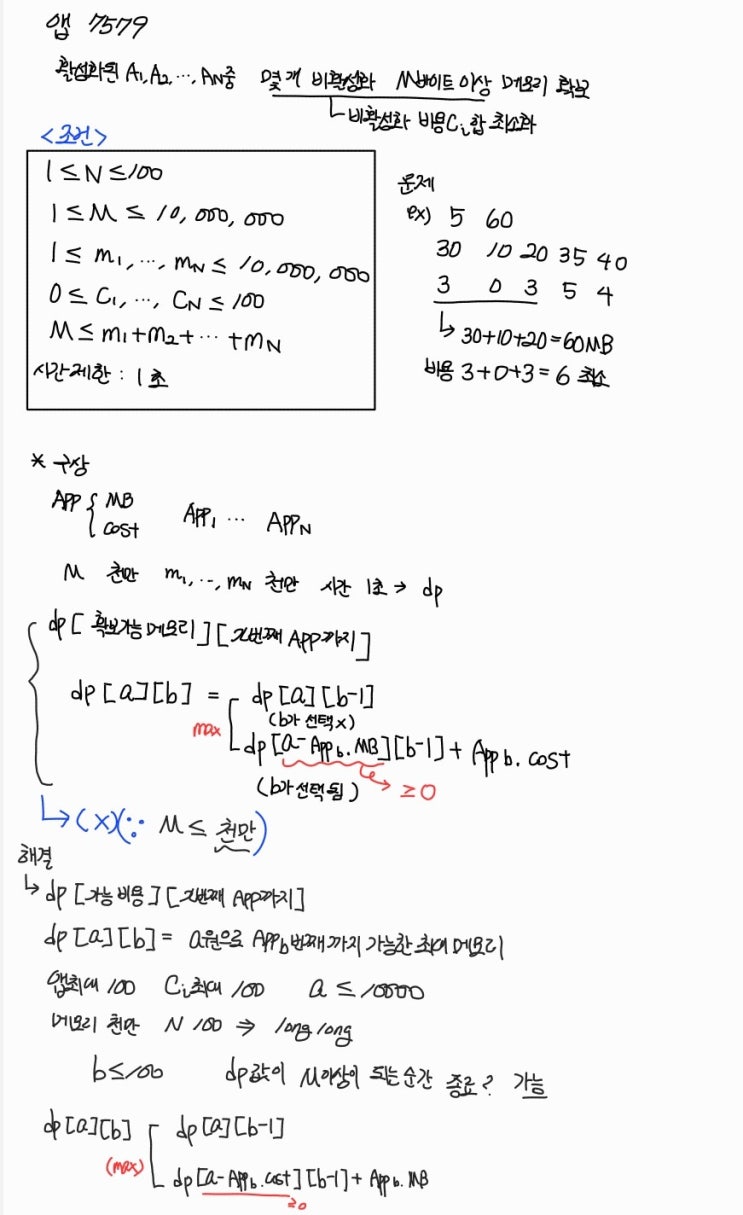 앱 7579
활성화된 A₁, A₂, ⋯, A_N중 몇 개 비활성화 M바이트 이상 메모리 확보
비활성화 비용 Cᵢ합 최소화
<조건>
1 ≤ N ≤ 100
1 ≤ M ≤ 10,000,000
1 ≤ m₁, ⋯, m_N ≤ 10,000,000
0 ≤ C₁, ⋯, C_N ≤ 100
M ≤ m₁+m₂+ ⋯ +m_N
시간제한 : 1초
문제
ex) 5 60
30 10 20 35 40
3 0 3 5 4
↳ 30+10+20=60MB
비용 3+0+3=6 최소
* 구상
APP { MB
cost
APP₁ ⋯ APP_N
M 천만 m₁, ⋯, m_N 천만 시간 1초 → dp
dp[확보가능 메모리][x번째 APP까지]
dp[a][b] = dp[a][b-1]
(b가 선택x)
max
dp[a-App_b.MB][b-1] + App_b.cost
(b가 선택됨) → ≥0
↳ (x)(∵ M ≤ 천만)
해결
↳ dp[가능 비용][x번째 App까지]
dp[a][b] = a원으로 App_b번째까지 가능한 최대 메모리
앱최대 100 Cᵢ최대 100 a ≤ 10000
메모리 천만 N 100 ⇒ long long
b≤100 dp값이 M이상이 되는순간 종료? 가능
dp[a][b] dp[a][b-1]
(max)
dp[a-App_b.cost][b-1] + App_b.MB
≥0